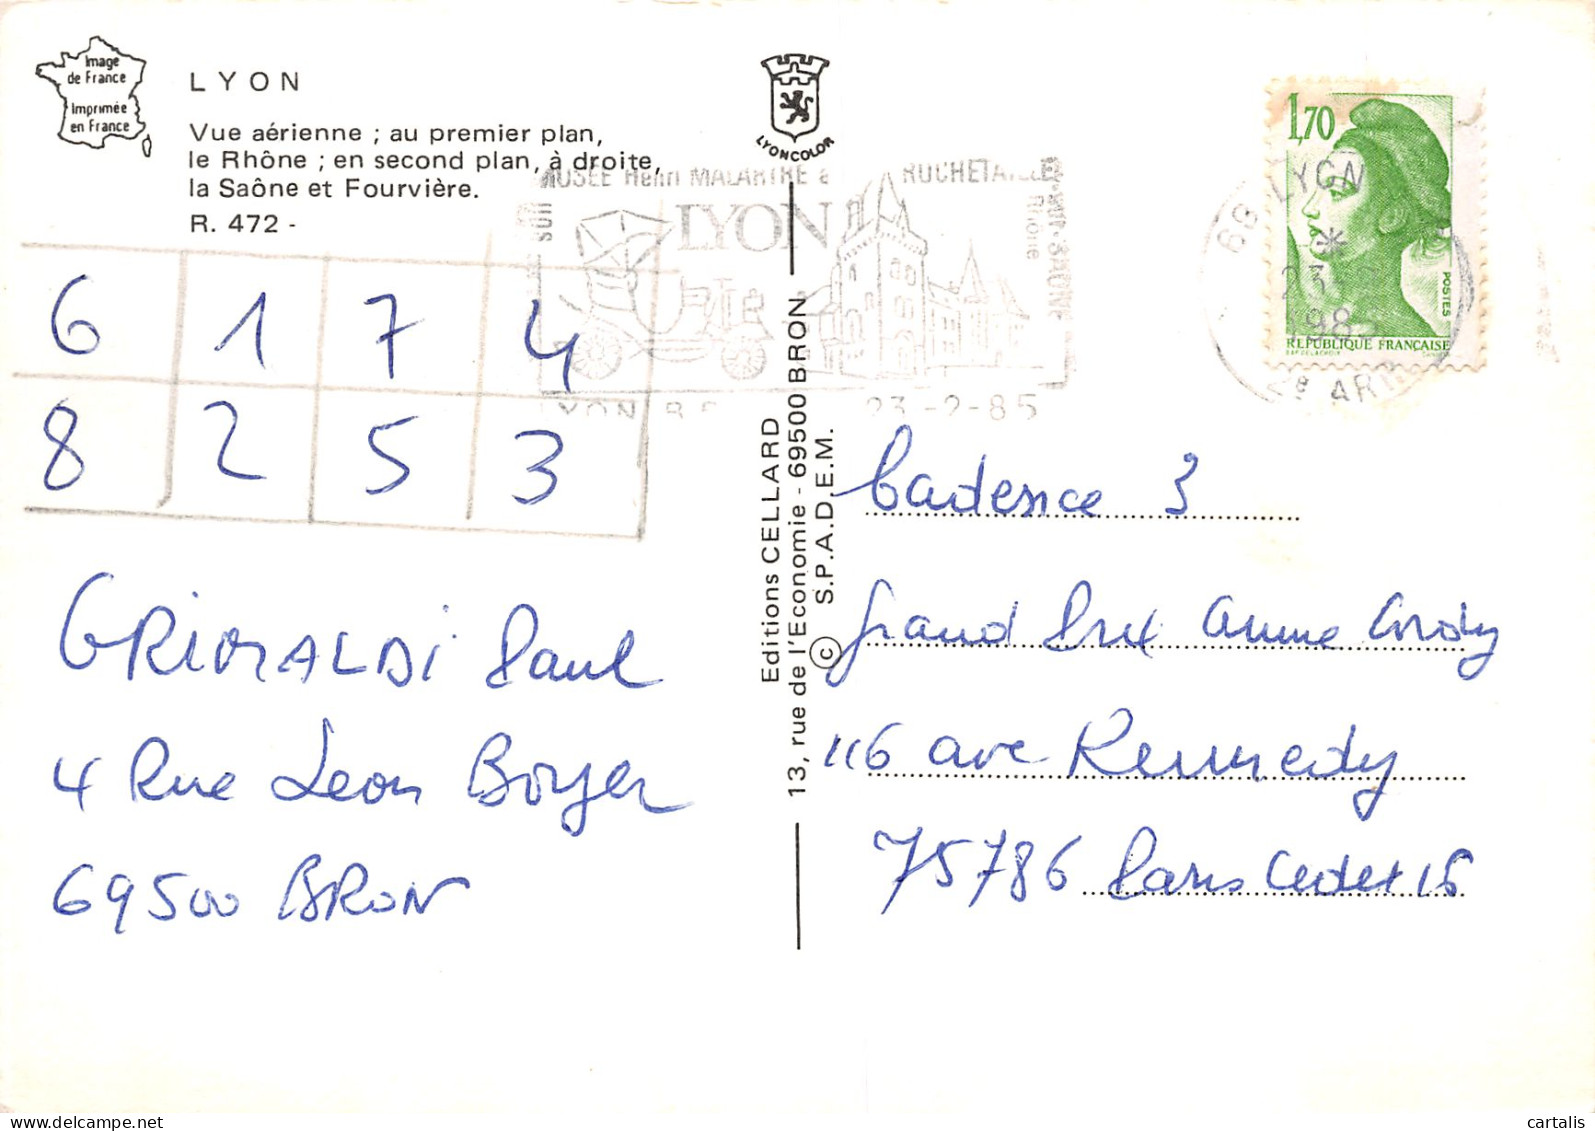 Image
de France
Imprimée
en France
LYON
Vue aérienne ; au premier plan,
le Rhône ; en second plan, à droite,
la Saône et Fourvière.
R. 472 -
LYONCOLOR
MUSÉE Henri MALARTRE
LYON
Rhône
23-2-85
1,70
POSTES
RÉPUBLIQUE FRANÇAISE
69 LYON
ARR
6 1 7 4
8 2 5 3
GRIMALDI Paul
4 Rue Leon Boyer
69500 BRON
Editions CELLARD
13, rue de l'Economie - 69500 BRON
© S.P.A.D.E.M.
Cadence 3
Grand Prix Anne Cordy
116 ave Kennedy
75786 Paris Cedex 16
delcampe.net
cartalis